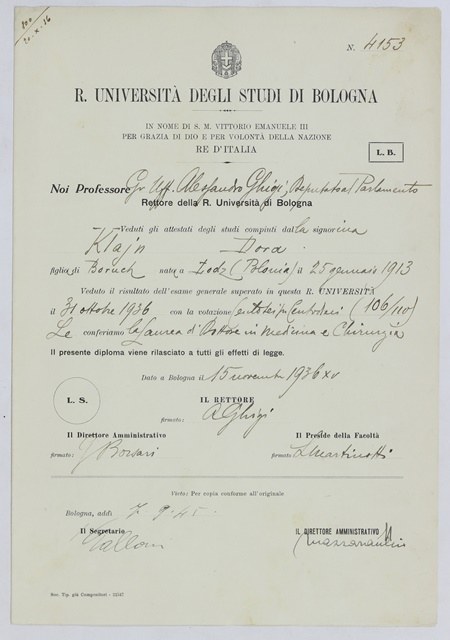 N. 4153
R. UNIVERSITÀ DEGLI STUDI DI BOLOGNA
IN NOME DI S. M. VITTORIO EMANUELE III
PER GRAZIA DI DIO E PER VOLONTÀ DELLA NAZIONE
RE D'ITALIA
L. B.
Noi Professore Gr. Uff. Alessandro Ghigi, Deputato al Parlamento
Rettore della R. Università di Bologna
Veduti gli attestati degli studi compiuti dalla signorina
Klajn Dora
figlia di Boruch nata a Lodz (Polonia) il 25 gennaio 1913
Veduto il risultato dell'esame generale superato in questa R. UNIVERSITÀ
il 31 ottobre 1936 con la votazione centosei su centodieci (106/110)
Le conferiamo la Laurea di Dottore in Medicina e Chirurgia
Il presente diploma viene rilasciato a tutti gli effetti di legge.
Dato a Bologna il 15 novembre 1936 XV
L. S.
IL RETTORE
firmato: A Ghigi
Il Direttore Amministrativo
firmato: Borsari
Il Preside della Facoltà
firmato L Martinotti
Visto: Per copia conforme all'originale
Bologna, addì 7. 9. 45.
Il Segretario
IL DIRETTORE AMMINISTRATIVO
Soc. Tip. già Compositori